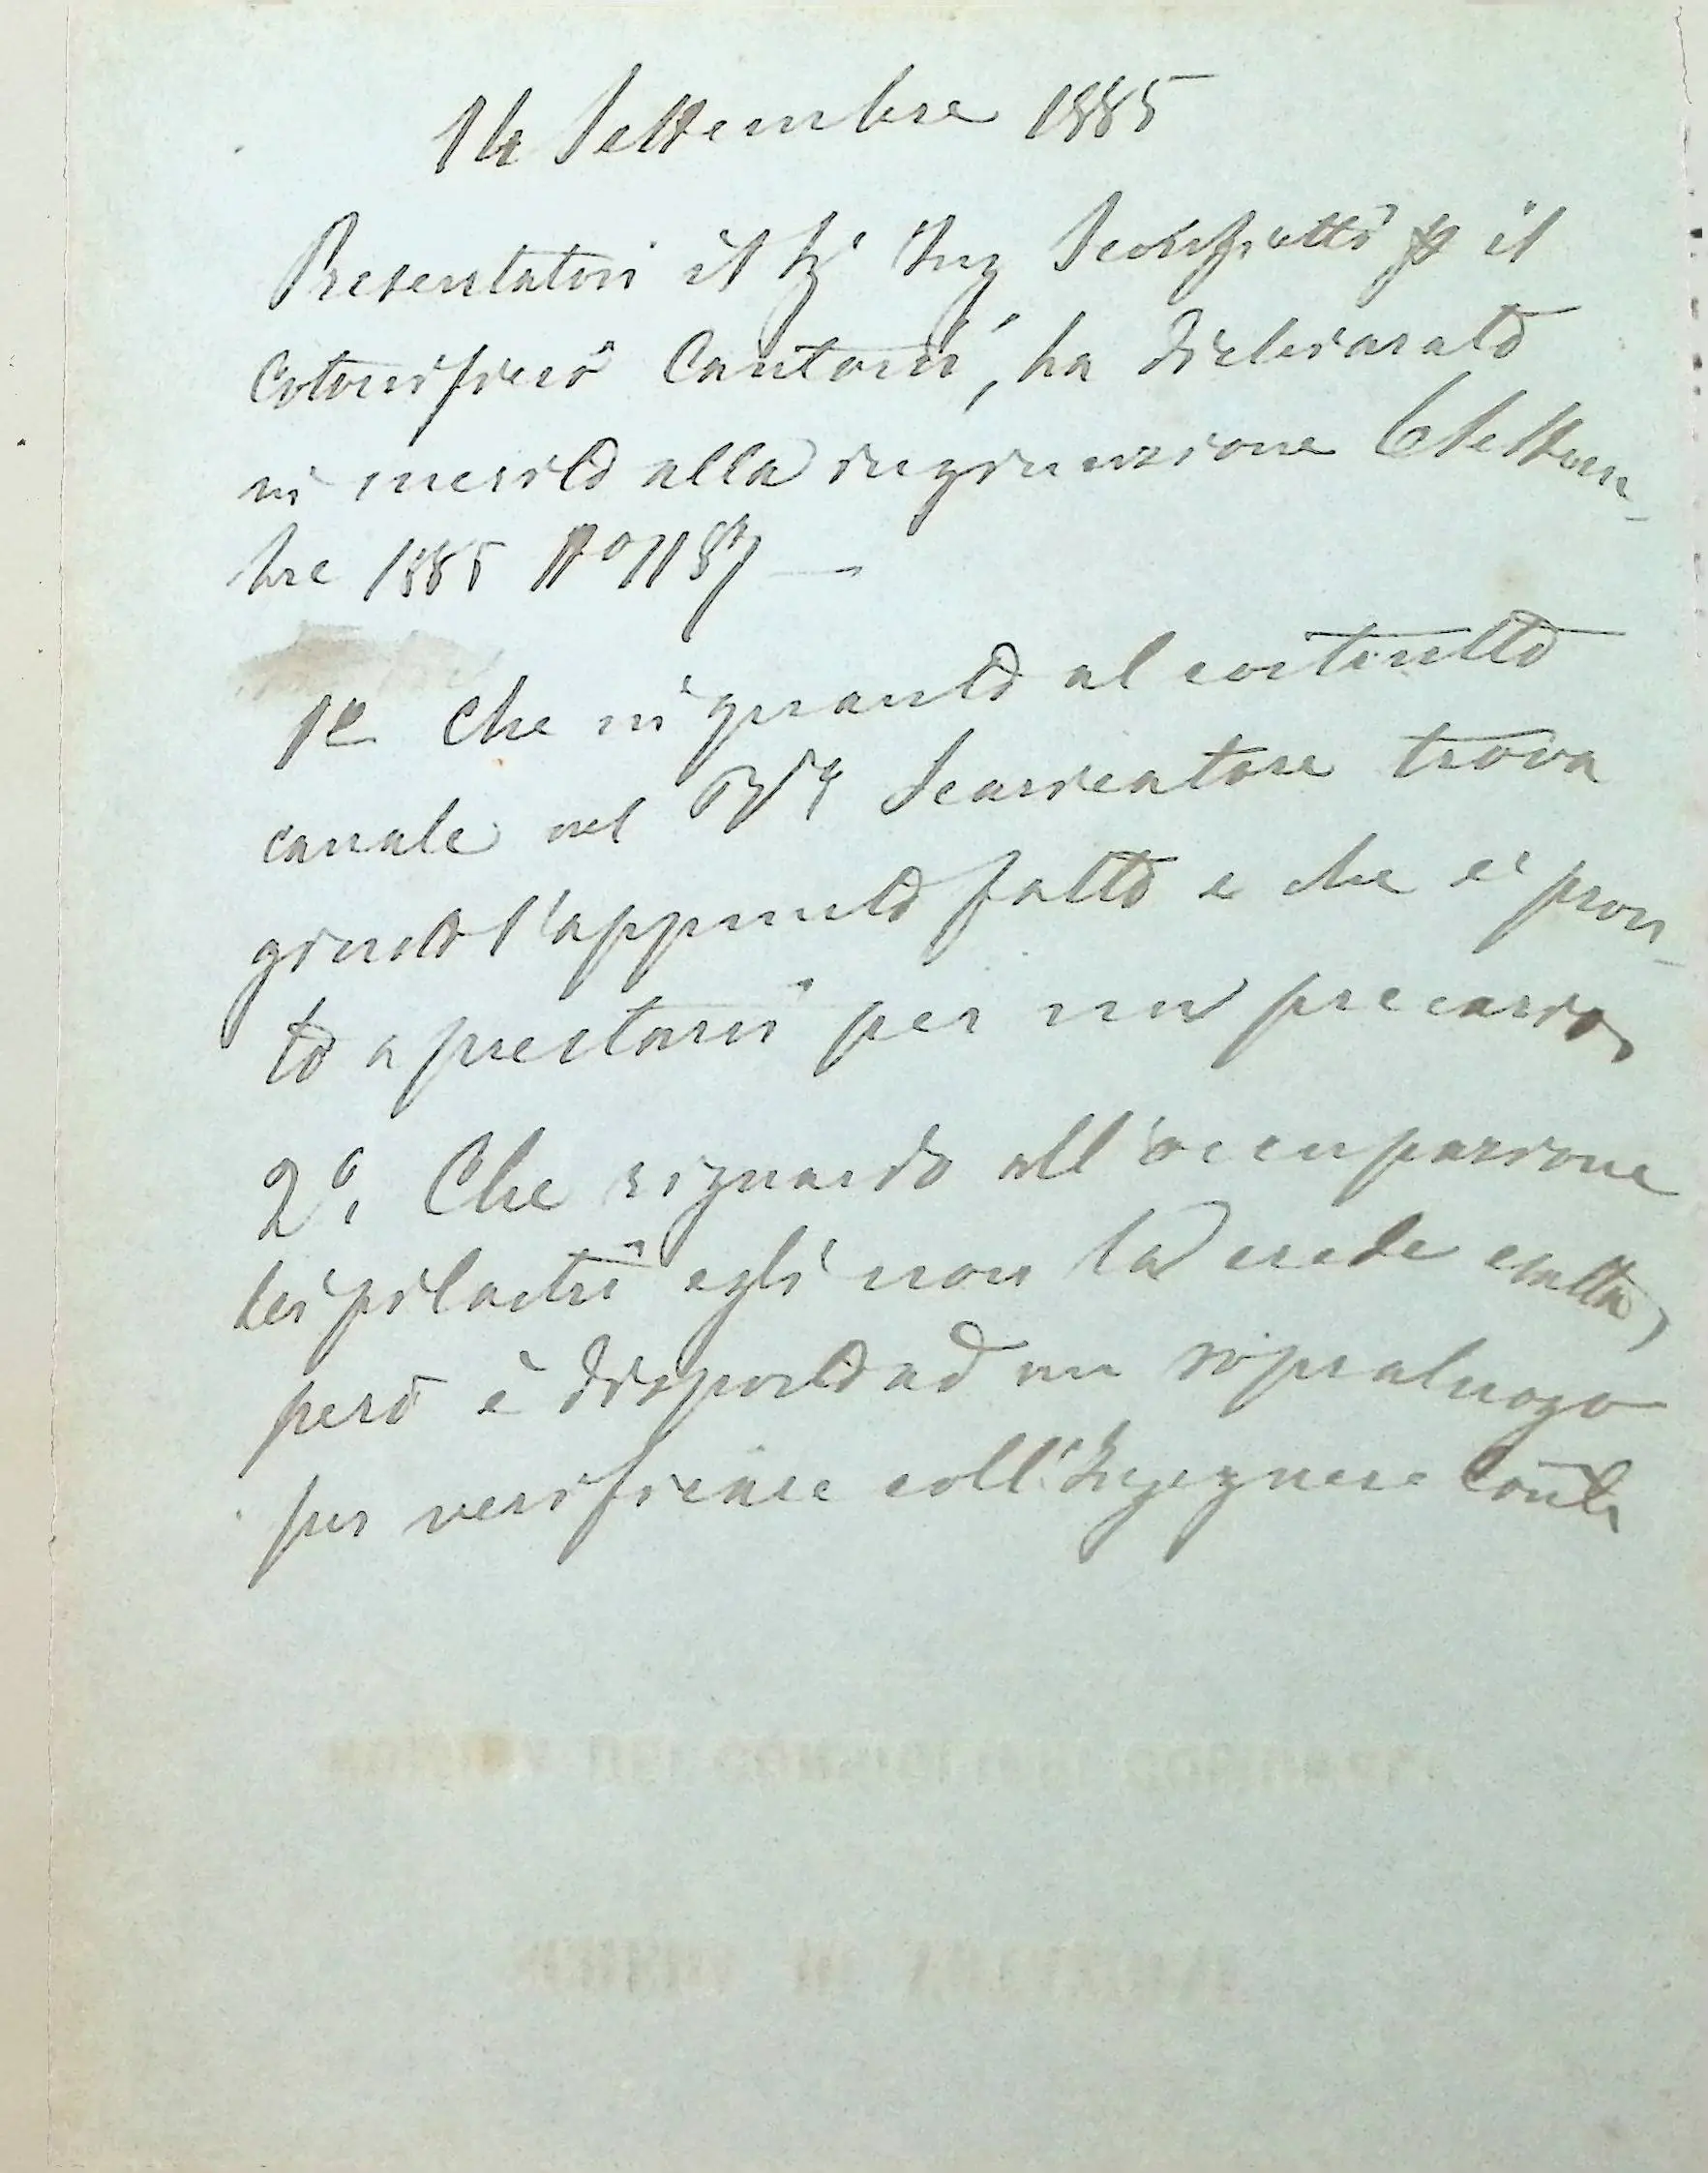 14 Settembre 1885
Presentatosi il Sig Ing Sconfietti p il
Cotonificio Cantoni, ha dichiarato
in merito alla ingiunzione 6 Settem-
bre 1885 N° 1187 —
1° Che in quanto al costrutto
canale nel Scaricatore trova
giusto l'appunto fatto e che è pron-
to a prestarsi per un precario
2°. Che riguardo all'occupazione
dei pilastri egli non la crede esatta,
però è disposto ad un sopraluogo
per verificare coll'Ingegnere Conti